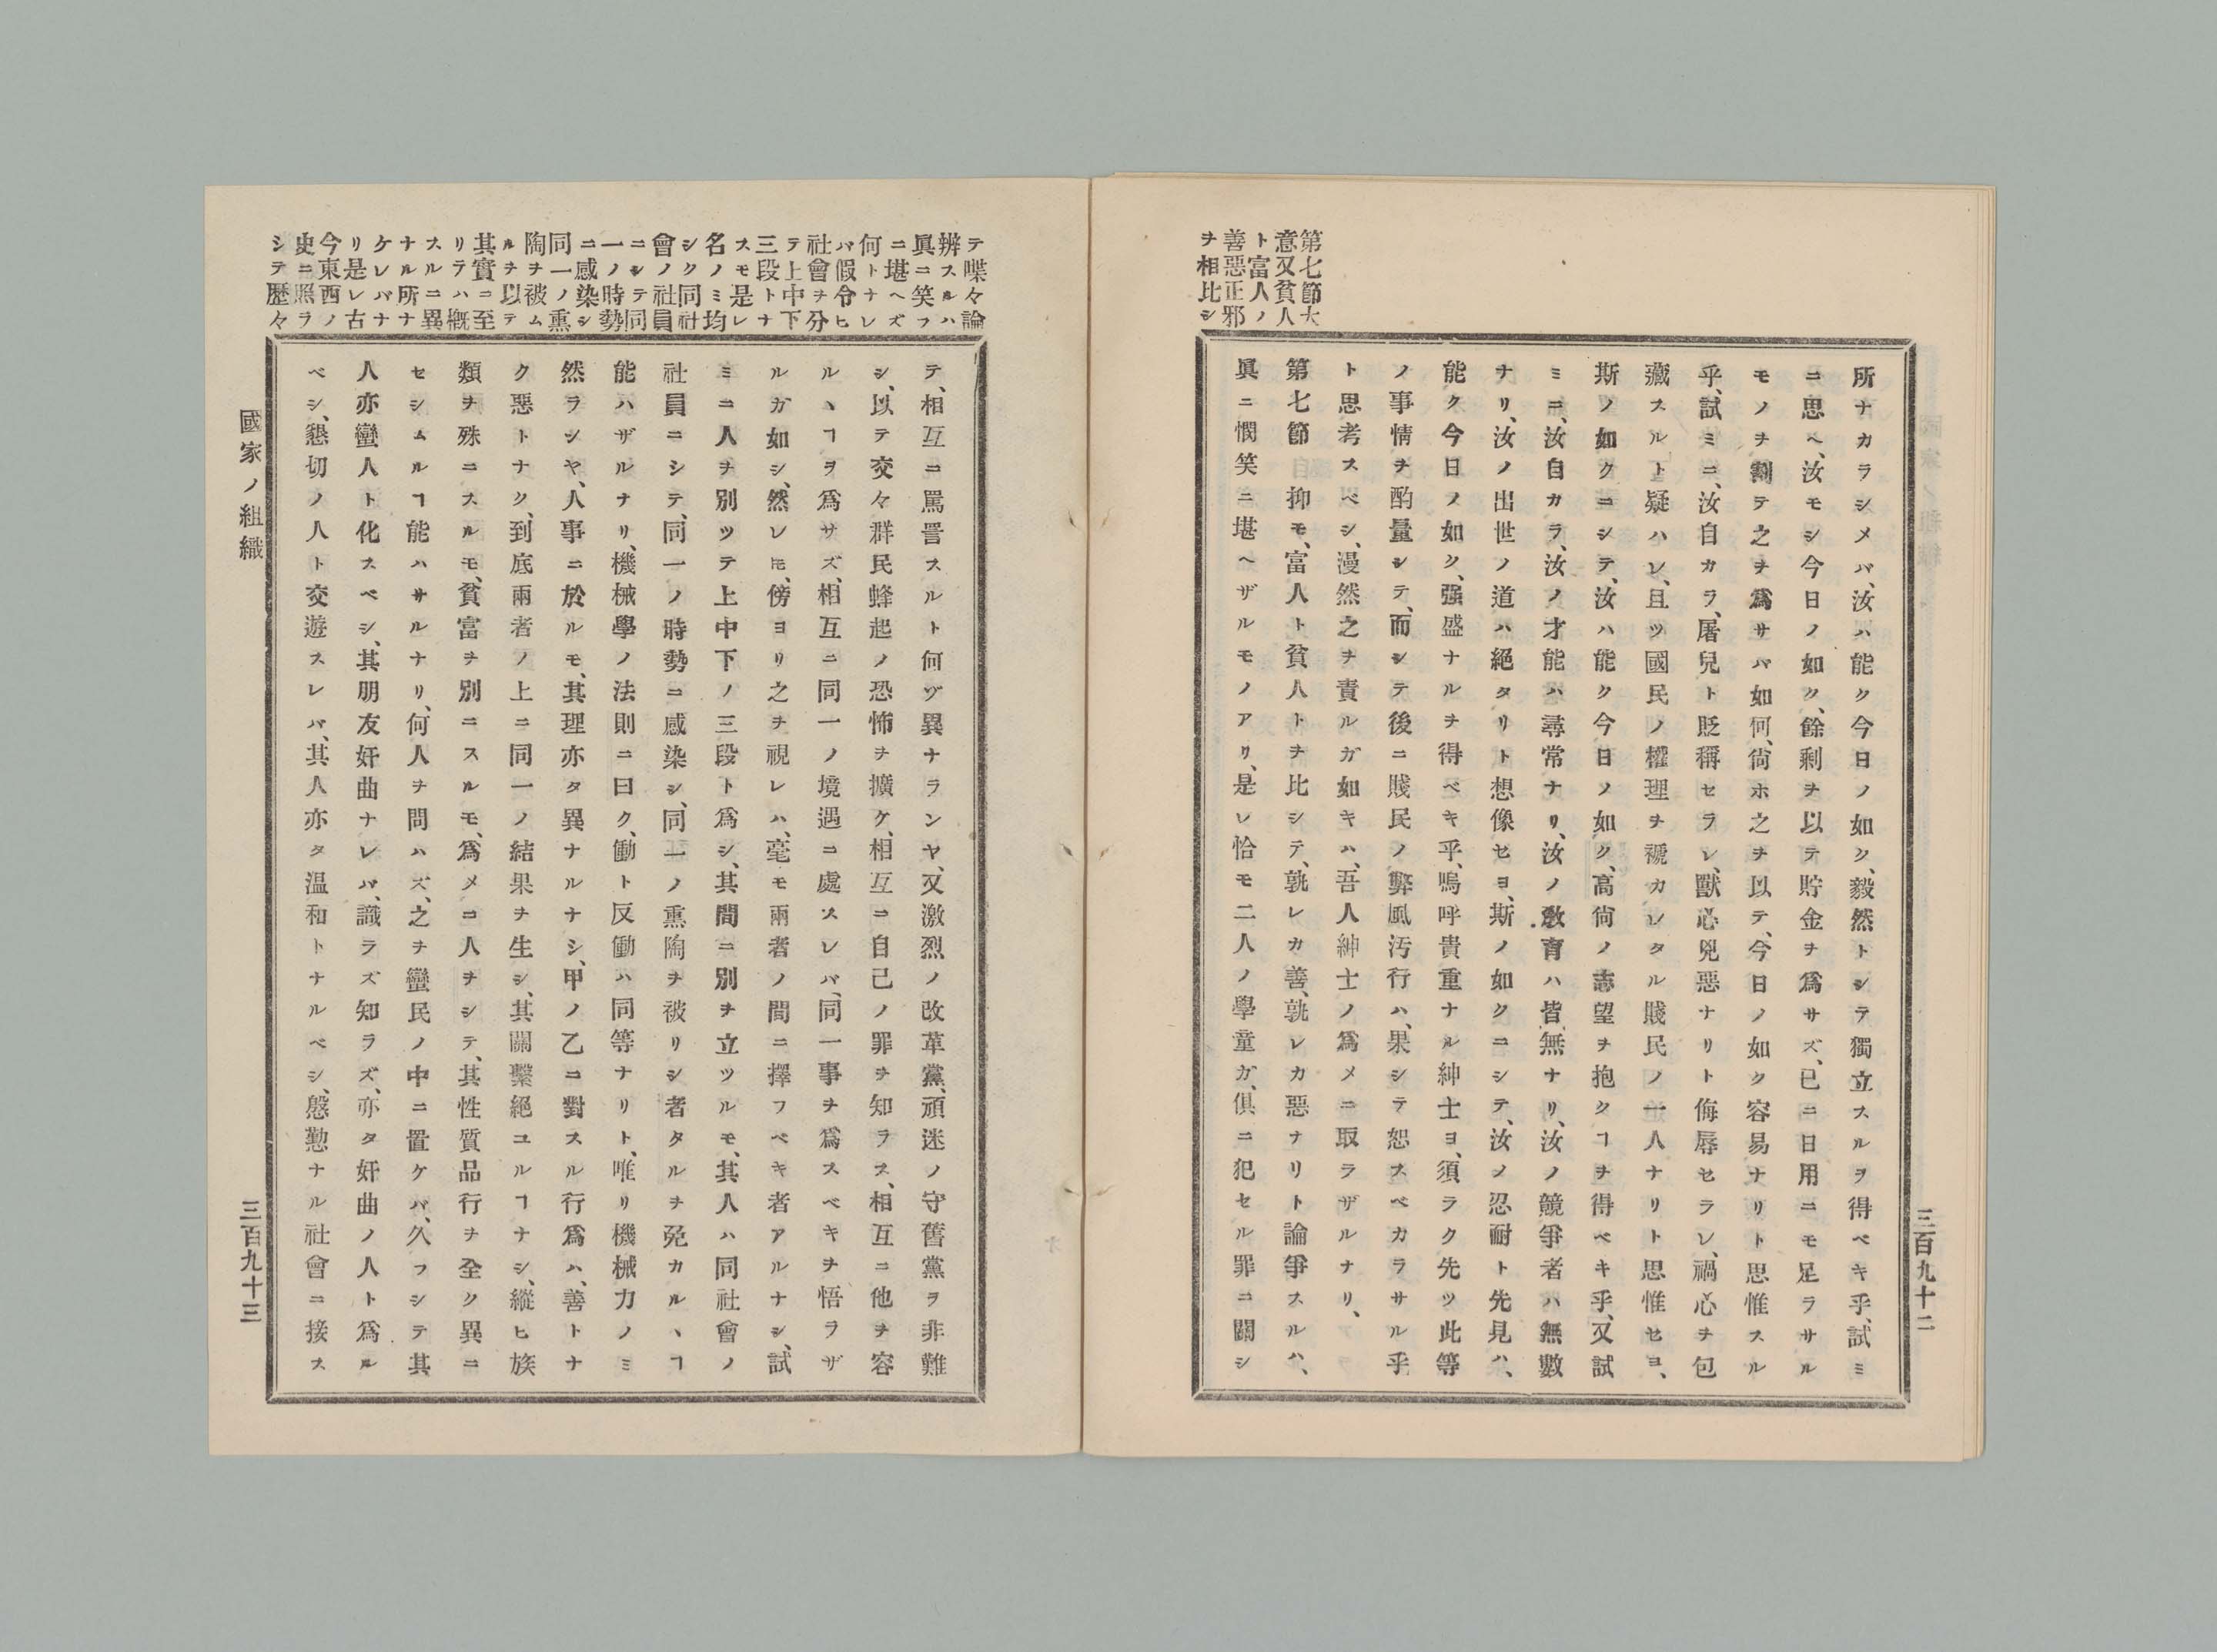 三百九十二
第七節大
意又貧人
ト富人ノ
善惡正邪
ヲ相比シ
所ナカラシメバ、汝ハ能ク今日ノ如ク、毅然トシテ獨立スルヲ得ベキ乎、試ミ
ニ思ヘ、汝モシ今日ノ如ク、餘剩ヲ以テ貯金ヲ爲サズ、已ニ日用ニモ足ラサル
モノヲ割テ之ヲ爲サバ如何、尙ホ之ヲ以テ、今日ノ如ク容易ナリト思惟スル
乎、試ミニ、汝自カラ、屠兒ト貶稱セラレ、獸心兇惡ナリト侮辱セラレ、禍心ヲ包
藏スルト疑ハレ、且ツ國民ノ權理ヲ褫カレタル賤民ノ一人ナリト思惟セヨ、
斯ノ如クニシテ、汝ハ能ク今日ノ如ク、高尙ノ志望ヲ抱クヿヲ得ベキ乎、又試
ミニ、汝自カラ、汝ノ才能ハ尋常ナリ、汝ノ敎育ハ皆無ナリ、汝ノ競爭者ハ無數
ナリ、汝ノ出世ノ道ハ絕タリト想像セヨ、斯ノ如クニシテ、汝ノ忍耐ト先見ハ、
能ク今日ノ如ク、强盛ナルヲ得ベキ乎、嗚呼貴重ナル紳士ヨ、須ラク先ツ此等
ノ事情ヲ酌量シテ、而シテ後ニ賤民ノ弊風汚行ハ、果シテ恕スベカラサル乎
ト思考スベシ、漫然之ヲ責ルガ如キハ、吾人紳士ノ爲メニ取ラザルナリ、
第七節　抑モ、富人ト貧人トヲ比シテ、孰レカ善、孰レカ惡ナリト論爭スルハ、
眞ニ憫笑ニ堪ヘザルモノアリ、是レ恰モ二人ノ學童ガ、俱ニ犯セル罪ニ關シ
テ喋々論
辨スルハ
眞ニ笑フ
ニ堪ヘズ
何トナレ
バ假令ヒ
社會ヲ分
テ上中下
三段トナ
スモ是レ
名ノミ均
シク同社
會ノ社員
ニシテ同
一ノ時勢
ニ感染シ
同一ノ熏
陶ヲ被ム
ルヲ以テ
其實ニ至
リラハ槪
スルニ異
ナル所ナ
ケレバナ
リ是レ古
今東西ノ
史ニ照ラ
シテ歷々
テ、相互ニ罵詈スルト何ゾ異ナランヤ、又激烈ノ改革黨、頑迷ノ守舊黨ヲ非難
シ、以テ交々群民蜂起ノ恐怖ヲ擴ケ、相互ニ自己ノ罪ヲ知ラス、相互ニ他ヲ容
ルヽヿヲ爲サズ、相互ニ同一ノ境遇ニ處スレバ、同一事ヲ爲スベキヲ悟ラザ
ルガ如シ、然レ𪜈、傍ヨリ之ヲ視レハ、毫モ兩者ノ間ニ擇フベキ者アルナシ、試
ミニ人ヲ別ツテ上中下ノ三段ト爲シ、其間ニ別ヲ立ツルモ、其人ハ同社會ノ
社員ニシテ、同一ノ時勢ニ感染シ、同一ノ熏陶ヲ被リシ者タルヲ免カルヽヿ
能ハザルナリ、機械學ノ法則ニ曰ク、働ト反働ハ同等ナリト、唯リ機械力ノミ
然ラシヤ、人事ニ於ルモ、其理亦タ異ナルナシ、甲ノ乙ニ對スル行爲ハ、善トナ
ク惡トナク、到底兩者ノ上ニ同一ノ結果ヲ生シ、其關繫絕ユルヿナシ、縱ヒ族
類ヲ殊ニスルモ、貧富ヲ別ニスルモ、爲メニ人ヲシテ、其性質品行ヲ全ク異ニ
セシムルヿ能ハサルナリ、何人ヲ問ハズ、之ヲ蠻民ノ中ニ置ケバ、久フシテ其
人亦蠻人ト化スベシ、其朋友奸曲ナレバ、識ラズ知ラズ、亦タ奸曲ノ人ト爲ル
ベシ、懇切ノ人ト交遊スレバ、其人亦タ温和トナルベシ、慇懃ナル社會ニ接ス
國家ノ組織
三百九十三